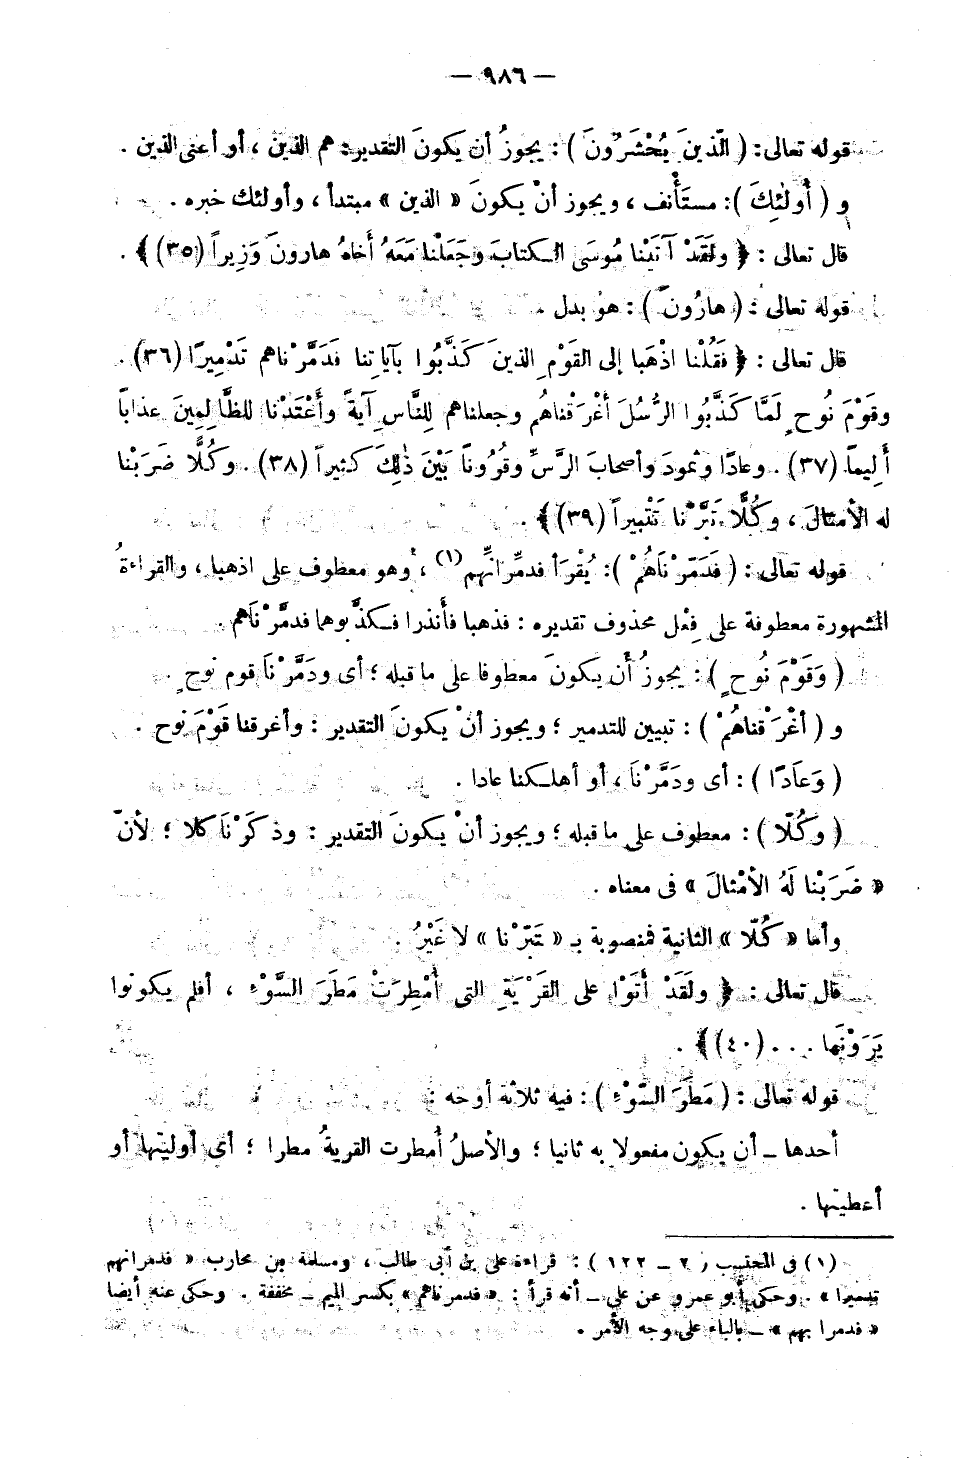 — ٩٨٦ —
قوله تعالى: ( الّذينَ يُحْشَرُونَ ) : يجوزُ أن يكونَ التقدير: هم الذين ، أو أعنى الذين .
و ( أُولٰئِكَ ): مستأْنف ، ويجوز أنْ يكونَ « الذين » مبتدأ ، وأولئك خبره .
قال تعالى : ﴿ ولَقَدْ آتَيْنا مُوسَى الكتابَ وجَعَلْنا مَعَهُ أَخاهُ هارونَ وَزِيراً (٣٥)﴾ .
قوله تعالى : ( هارُونَ ) : هو بدل .
قال تعالى : ﴿ فَقُلْنا اذْهَبا إلى القَوْمِ الذينَ كَذَّبُوا بآياتنا فَدَمَّرْناهم تَدْمِيرًا (٣٦) .
وقَوْمَ نُوحٍ لَمَّا كَذَّبُوا الرُّسُلَ أَغْرَقْناهُم وجعلناهم لِلنَّاسِ آيَةً وأَعْتَدْنا للظَّالِمِينَ عذاباً
أَلِيمًا (٣٧) . وعادًا وثمودَ وأصحابَ الرَّسِّ وقُرُوناً بَيْنَ ذٰلِكَ كثيراً (٣٨) . وكُلًّا ضَرَبْنا
له الأمثالَ ، وكُلًّا تَبَّرْنا تَتْبِيراً (٣٩)﴾ .
قوله تعالى : ( فَدَمّرْنَاهُمْ ): يُقْرَأ فدمِّرانِّهم(١) ، وهو معطوف على اذهبا ، والقراءةُ
المشهورة معطوفة على فِعْل محذوف تقديره : فذهبا فأَنذرا فكذَّبوهما فدمَّرْنَاهم .
( وَقَوْمَ نُوحٍ ) : يجوزُ أن يكونَ معطوفا على ما قبله ؛ أى ودَمَّرْنَا قوم نوحٍ .
و ( أغْرَقْناهُمْ ) : تبيين للتدمير ؛ ويجوز أنْ يكونَ التقدير : وأغرقنا قَوْمَ نوح .
( وَعَادًا ) : أى ودَمَّرْنَا ، أو أهلكنا عادا .
( وكُلّا ) : معطوف على ما قبله ؛ ويجوز أنْ يكونَ التقدير : وذكَرْنَا كلا ؛ لأنّ
« ضَرَبْنا لَهُ الأمْثالَ » فى معناه .
وأما « كُلّا » الثانية فمنصوبة بـ « تَبَّرْنا » لا غَيْرُ .
قال تعالى : ﴿ ولَقَدْ أَتَوْا على القَرْيَةِ التى أُمْطِرَتْ مَطَرَ السَّوْءِ ، أفلم يكونوا
يَرَوْنَها . . . (٤٠)﴾ .
قوله تعالى : ( مَطَرَ السَّوْءِ ) : فيه ثلاثة أوجه :
أحدها ـ أن يكون مفعولا به ثانيا ؛ والأصلُ أُمطرت القريةُ مطرا ؛ أى أوليتها أو
أعطيتها .
(١) فى المحتسب ( ٢ ـ ١٢٢ ) : قراءة على بن أبى طالب ، ومسلمة بن محارب « فدمرانهم
تدميرا » . وحكى أبو عمرو عن على ـ أنه قرأ : « فدمرناهم » بكسر الميم ـ مخففة . وحكى عنه أيضا
« فدمرا بهم » ـ بالباء على وجه الأمر .